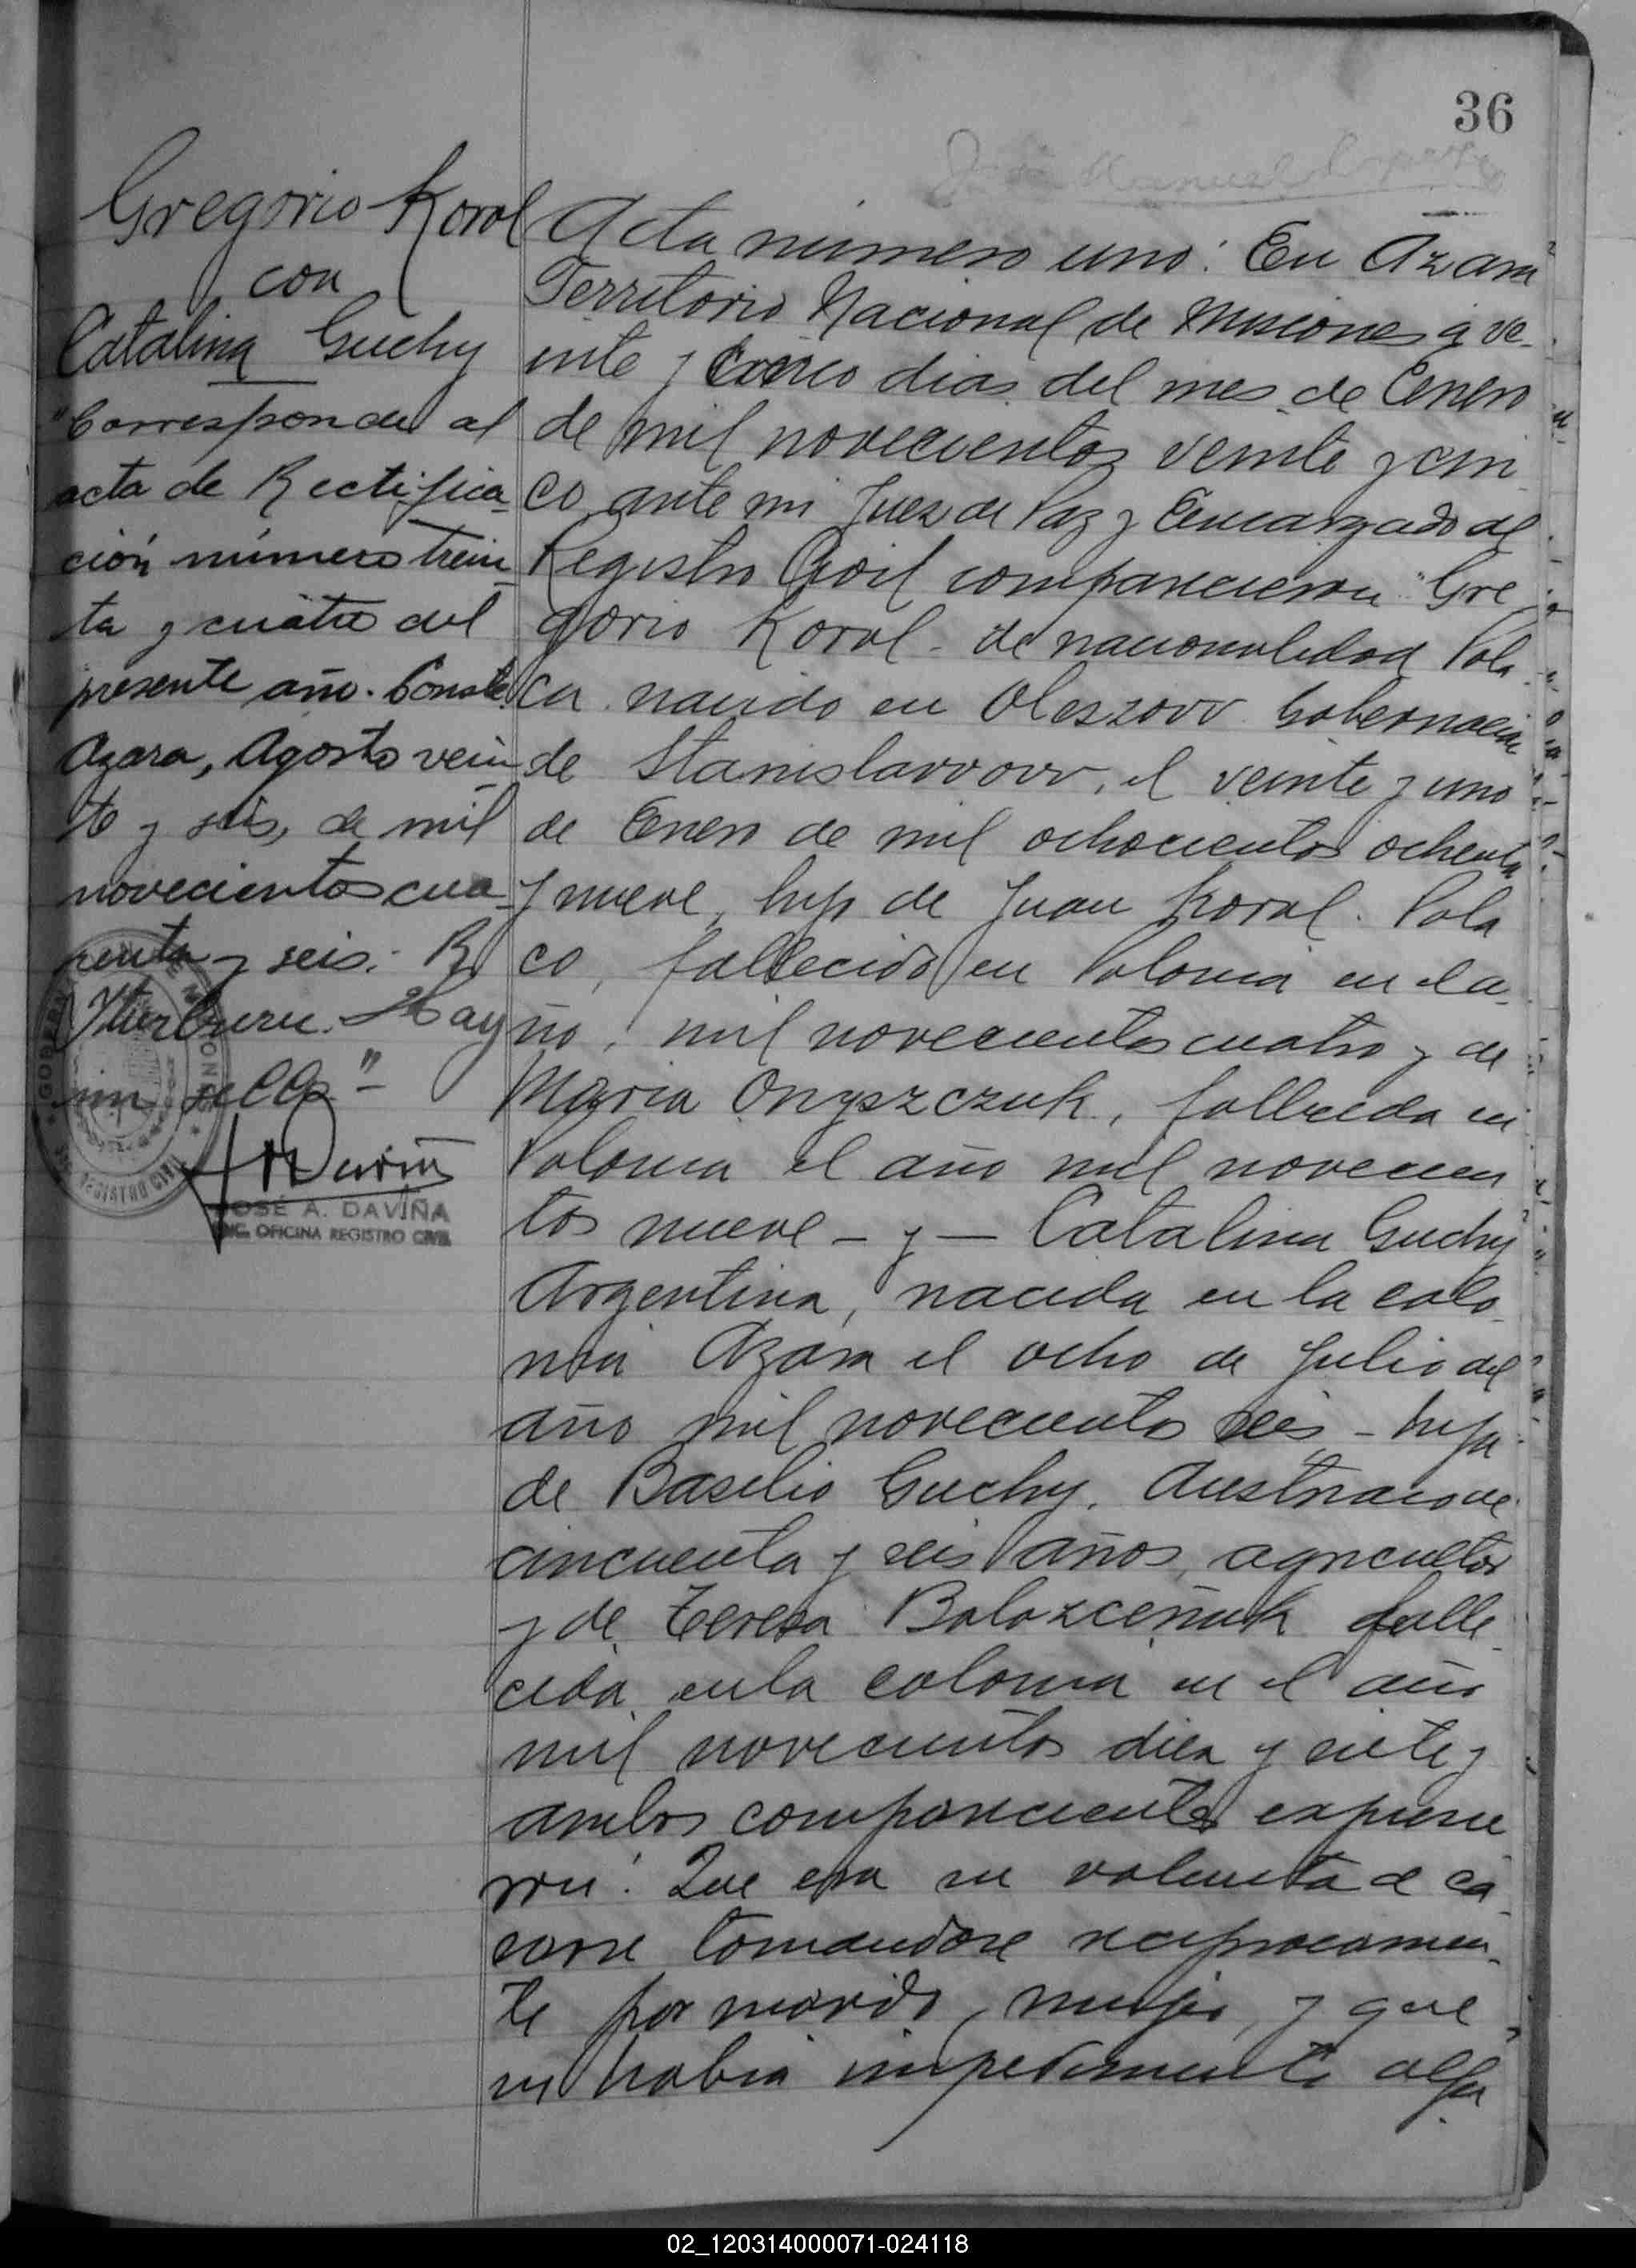 36
Gregorio Korol
con
Catalina Guchy
"Corresponde al
acta de Rectifica-
ción número trein-
ta y cuatro del
presente año. Conste.
Azara, Agosto vein-
te y seis, de mil
novecientos cua-
renta y seis: R.
Iturburu. Hay
un sello"-
JOSÉ A. DAVIÑA
ENC. OFICINA REGISTRO CIVIL
Acta número uno: En Azara
Territorio Nacional de Misiones á ve-
inte y cinco dias del mes de Enero
de mil novecientos veinte y cin
co ante mi Juez de Paz y Encargado del
Registro Civil comparecieron: Gre
gorio Korol - de nacionalidad Pola
ca nacido en Oleszow Gobernacion
de Stanislawow, el veinte y uno
de Enero de mil ochocientos ochenta
y nueve, hijo de Juan Korol. Pola
co, fallecido en Polonia en el a-
ño, mil novecientos cuatro y de
Maria Onyszczuk, fallecida en
Polonia el año mil novecien
tos nueve - y - Catalina Guchy
Argentina, nacida en la colo-
nia Azara el ocho de Julio del
año mil novecientos seis - hija
de Basilio Guchy, Austriaco de
cincuenta y seis años, agricultor
y de Teresa falle-
cida en la colonia en el año
mil novecientos diez y siete y
ambos comparecientes expusie
ron: Que era su voluntad ca-
sarse tomandose reciprocamen-
te por marido y mujer, y que
no habia impedimento algu
02_120314000071-024118